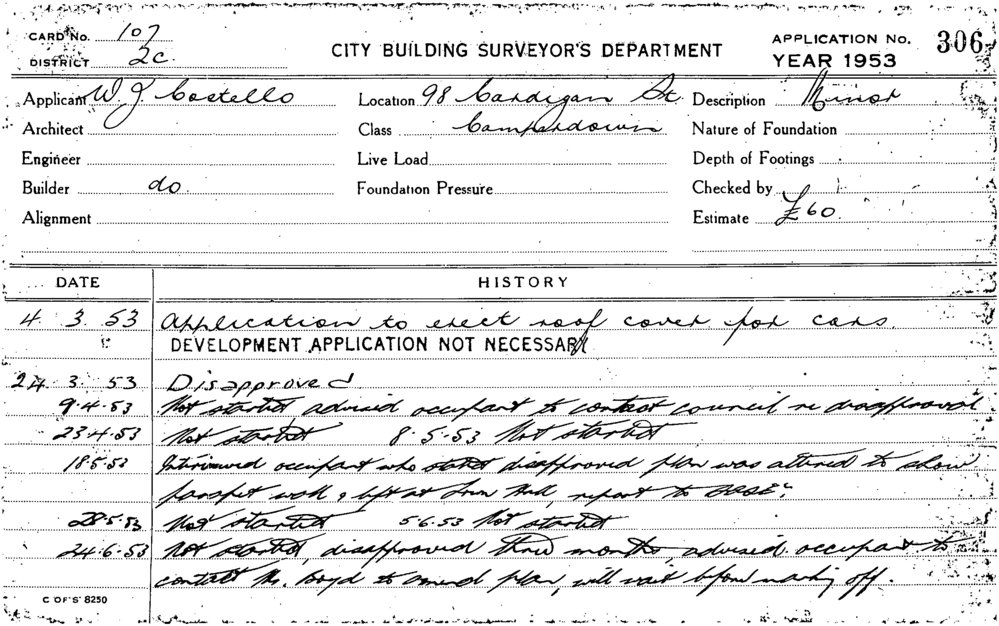 CARD No. 107
DISTRICT 2c.
CITY BUILDING SURVEYOR'S DEPARTMENT
APPLICATION No. 306
YEAR 1953
Applicant W. J. Costello Location 98 Cardigan St. Description Minor
Architect Class Camperdown Nature of Foundation
Engineer Live Load Depth of Footings
Builder do. Foundation Pressure Checked by
Alignment Estimate £60
DATE HISTORY
4. 3. 53 Application to erect roof cover for cars.
DEVELOPMENT APPLICATION NOT NECESSARY
24. 3. 53 Disapproved
9.4.53 Not started advised occupant to contact council re disapproval.
23.4.53 Not started 8.5.53 Not started
18.5.53 Interviewed occupant who disapproved plan was altered to show
parapet wall & left at Town Hall, report to
28.5.53 Not started 5.6.53 Not started
24.6.53 Not started, disapproved three months advised occupant to
contact Mr. Boyd to amend plan, will wait before marking off.
C OF S 8250